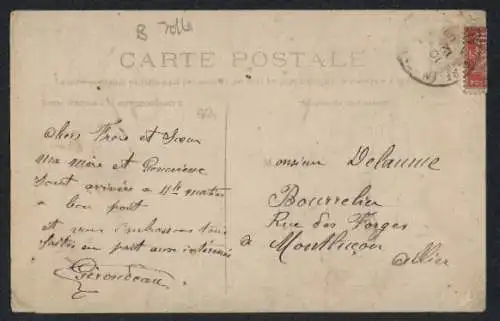 CARTE POSTALE
Chers Frère et Sœur
ma mère et
sont arrivée a 4h matin
a bon port
et vous embrassons tous
faites en part aux intéressés
Girondeau
Monsieur Delaume
Bourrelier
Rue des Forges
à Montluçon
Allier